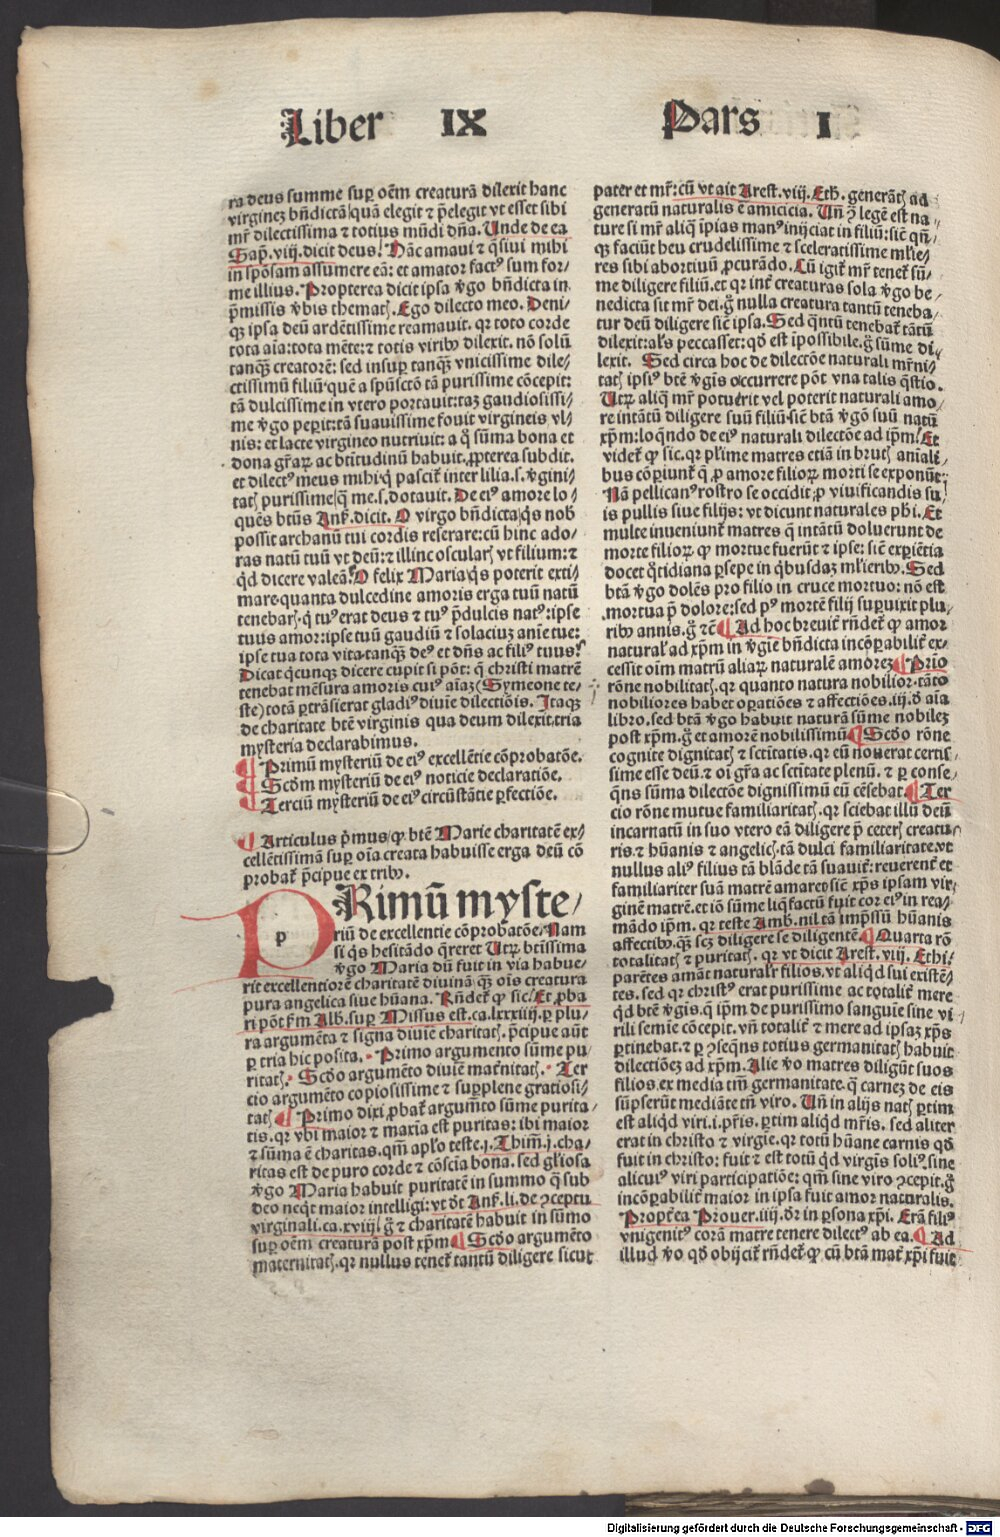 Liber IX Pars I
ra deus summe suꝑ oēm creaturā dilexit hanc
virginez bn̄dictā quā elegit ⁊ p̄elegit vt esset sibi
mr̄ dilectissima ⁊ totius mūdi dn̄a. Unde de ea
Sap̄. viij. dicit deus. Hāc amaui ⁊ q̄siui mihi
in spōsam assumere eā: et amator factꝰ sum for⸗
me illius. Propterea dicit ipsa v̄go bn̄dicta in
p̄missis v̄bis thematꝭ. Ego dilecto meo. Deni⸗
qꝫ ipsa deū ardētissime reamauit. qꝛ toto corde
tota aīa: tota mēte: ⁊ totis viribꝰ dilexit. nō solū
tanqꝫ creatorē: sed insuꝑ tanqꝫ vnicissime dile⸗
ctissimū filiū quē a spūsctō tā purissime cōcepit:
tā dulcissime in vtero portauit: taꝫ gaudiosissi⸗
me v̄go peꝑit: tā suauissime fouit virgineis vl⸗
nis: et lacte virgineo nutriuit: a q̊ sūma bona et
dona gr̄aꝝ ac btītudinū habuit. ꝓpterea subdit.
et dilectꝰ meus mihi q̇ pascit̉ inter lilia. s. v̄gini⸗
tatꝭ purissime q̄ me. s. dotauit. De eiꝰ amore lo⸗
quēs btūs Ans̄. dicit. O virgo bn̄dicta q̇s nob̄
possit archanū tui cordis reserare: cū hinc ado⸗
ras natū tuū vt deū: ⁊ illinc oscularꝭ vt filium: ⁊
qd̄ dicere valeā. O felix Maria q̇s poterit exti⸗
mare quanta dulcedine amoris erga tuū natū
tenebarꝭ. q̇ tuꝰ erat deus ⁊ tuꝰ p̄dulcis natꝰ: ipse
tuus amor: ipse tuū gaudiū ⁊ solaciuꝫ anīe tue:
ipse tua tota vita tanqꝫ deꝰ et dn̄s ac filiꝰ tuus.
Dicat q̇cunqꝫ dicere cupit si pōt: q̄ christi matrē
tenebat mēsura amoris cuiꝰ aīaꝫ (Symeone te⸗
ste) totā ꝑtrāsierat gladiꝰ diuīe dilectiōis. Itaqꝫ
de charitate btē virginis qua deum dilexit. tria
mysteria declarabimus.
¶ Primū mysteriū de eiꝰ excellētie cōprobatōe.
¶ Scdm̄ mysteriū de eiꝰ noticie declaratiōe.
¶ Terciū mysteriū de eiꝰ circūstātie ꝑfectiōe.
¶ Articulus p̄mus ꝙ btē Marie charitatē ex⸗
cellētissimā suꝑ oīa creata habuisse erga deū cō
probat̉ p̄cipue ex tribꝰ.
PRimū myste⸗
riū de excellentie cōprobatōe. Nam
si q̇s hesitādo q̄reret Utꝝ btissima
v̄go Maria dū fuit in via habue⸗
rit excellentiorē charitatē diuinā qꝫ oīs creatura
pura angelica siue hūana. Rn̄det̉ ꝙ sic. Et ꝓba
ri pōt s̄m Alb̄. suꝑ Missus est. ca. lxxxiiij. ꝑ plu⸗
ra argumēta ⁊ signa diuīe charitatꝭ. p̄cipue aūt
ꝑ tria hic posita. Primo argumento sūme pu⸗
ritatꝭ. Scd̄o argumēto diuīe mat̉nitatꝭ. Ter
cio argumēto copiosissime ⁊ suꝑplene gratiosi⸗
tatꝭ ¶ Primo dixi ꝓbat̉ argum̄to sūme purita⸗
tis. qꝛ vbi maior ⁊ maxīa est puritas: ibi maior
⁊ sūma ē charitas. qm̄ apl̄o teste. j. Thim̄. j. cha⸗
ritas est de puro corde ⁊ cōscīa bona. sed gl̄iosa
v̄go Maria habuit puritatē in summo q̄ sub
deo neqt̄ maior intelligi: vt dr̄ Ans̄. li. de ꝯceptu
virginali. ca. xviij. g̊ ⁊ charitatē habuit in sūmo
suꝑ oēm creaturā post xp̄m ¶ Scd̄o argumēto
maternitatꝭ. qꝛ nullus tenet̉ tantū diligere sicut
pater et mr̄: cū vt ait Arest. viij. Eth̄. generātꝭ ad
generatū naturalis ē amicicia. Un̄ ꝯ̄ legē est na⸗
ture si mr̄ aliq̄ īpias manꝰ inijciat in filiū: sic̄ qn̄⸗
qꝫ faciūt heu crudelissime ⁊ sceleratissime ml̄ie⸗
res sibi abortiuū ꝓcurādo. Cū igit̉ mr̄ tenet̉ sū⸗
me diligere filiū. et qꝛ int̉ creaturas sola v̄go be⸗
nedicta sit mr̄ dei. g̊ nulla creatura tantū teneba⸗
tur deū diligere sic̄ ipsa. Sed q̄ntū tenebat̉ tātū
dilexit: al̄s peccasset: qd̄ est īpossibile. g̊ sūme di⸗
lexit. Sed circa hoc de dilectōe naturali mr̄ni⸗
tatꝭ ipsiꝰ btē v̄gīs occurrere pōt vna talis q̄stio.
Utꝝ aliq̄ mr̄ potuerit vel poterit naturali amo⸗
re intātū diligere suū filiū sic̄ btā v̄gō suū natū
xp̄m: loq̄ndo de eiꝰ naturali dilectōe ad ip̄m. Et
videt̉ ꝙ sic. qꝛ plīme matres etiā in brutꝭ anīali⸗
bus cōꝑiunt̉ q̄ ꝓ amore filioꝝ morti se exponūt:
Nā pellicanꝰ rostro se occidit ꝓ viuificandis su
is pullis siue filijs: vt dicunt naturales pħi. Et
multe inueniunt̉ matres q̄ intātū doluerunt de
morte filioꝝ ꝙ mortue fuerūt ⁊ ipse: sic̄ exꝑiētia
docet q̊tidiana ꝑsepe in q̇busdaꝫ ml̄ieribꝰ. Sed
btā v̄go dolēs pro filio in cruce mortuo: nō est
mortua p̄ dolore: sed pꝰ mortē filij suꝑuixit plu⸗
ribꝰ annis. g̊ ⁊cē ¶ Ad hoc breuit̉ rn̄det̉ ꝙ amor
natural̉ ad xp̄m in v̄gīe bn̄dicta incōꝑabilit̉ ex⸗
cessit oīm matrū aliaꝝ naturalē amorez ¶ Prīo
rōne nobilitatꝭ. qꝛ quanto natura nobilior tāto
nobiliores habet oꝑatiōes ⁊ affectiōes. iij. d̄ aīa
libro. sed btā v̄go habuit naturā sūme nobilez
post xp̄m. g̊ et amorē nobilissimū ¶ Scd̄o rōne
cognite dignitatꝭ ⁊ sctītatis. qꝛ eū nouerat certis⸗
sime esse deū. ⁊ oī gr̄a ac sctītate plenū. ⁊ ꝑ conse⸗
q̄ns sūma dilectōe dignissimū eū cēsebat ¶ Ter
cio rōne mutue familiaritatꝭ. qꝛ sciebat illū deū
incarnatū in suo vtero eā diligere p̄ ceterꝭ creatu⸗
ris. ⁊ hūanis ⁊ angelicꝭ. tā dulci familiaritate. vt
nullus aliꝰ filius tā blāde tā suauit̉: reuerent̉ et
familiariter suā matrē amaret sic̄ xp̄s ipsam vir⸗
ginē matrē. et iō sūme liq̄factū fuit cor eiꝰ in rea⸗
mādo ip̄m. qꝛ teste Amb̄. nil tā imp̄ssū hūanis
affectibꝰ. qꝫ scꝫ diligere se diligentē ¶ Quarta rō
totalitatꝭ ⁊ puritatꝭ. qꝛ vt dicit Arest. viij. Ethi⸗
parētes amāt naturalr̄ filios. vt aliqd̄ sui existē⸗
tes. sed qꝛ christꝰ erat purissime ac totalit̉ mere
qd̄ btē v̄gīs. q̄ ip̄m de purissimo sanguīe sine vi⸗
rili semīe cōcepit. vn̄ totalit̉ ⁊ mere ad ipsaꝫ xp̄s
ꝑtinebat. ⁊ ꝑ ꝯseq̄ns totius germanitatꝭ habuit
dilectiōez ad xp̄m. Alie v̊o matres diligūt suos
filios. ex media tm̄ germanitate. q̄ carnez de eis
sūpserūt mediāte tn̄ viro. Un̄ in alijs natꝭ ꝑtim
est aliqd̄ viri. i. pr̄is. ꝑtim aliqd̄ mr̄is. sed aliter
erat in christo ⁊ virgīe. qꝛ totū hūane carnis qd̄
fuit in christo: fuit ⁊ est totū qd̄ virgīs soliꝰ. sine
alicuiꝰ viri participatiōe: qm̄ sine viro ꝯcepit. g̊
incōꝑabilit̉ maior in ipsa fuit amor naturalis.
Propt̉ea Prouer. iiij. dr̄ in ꝑsona xp̄i. Etn̄ filiꝰ
vnigenitꝰ corā matre tenere dilectꝰ ab ea. ¶ Ad
illud v̊o qd̄ obijcit̉ rn̄det̉ ꝙ cū btā mat̉ xp̄i fuit
Digitalisierung gefördert durch die Deutsche Forschungsgemeinschaft - DFG